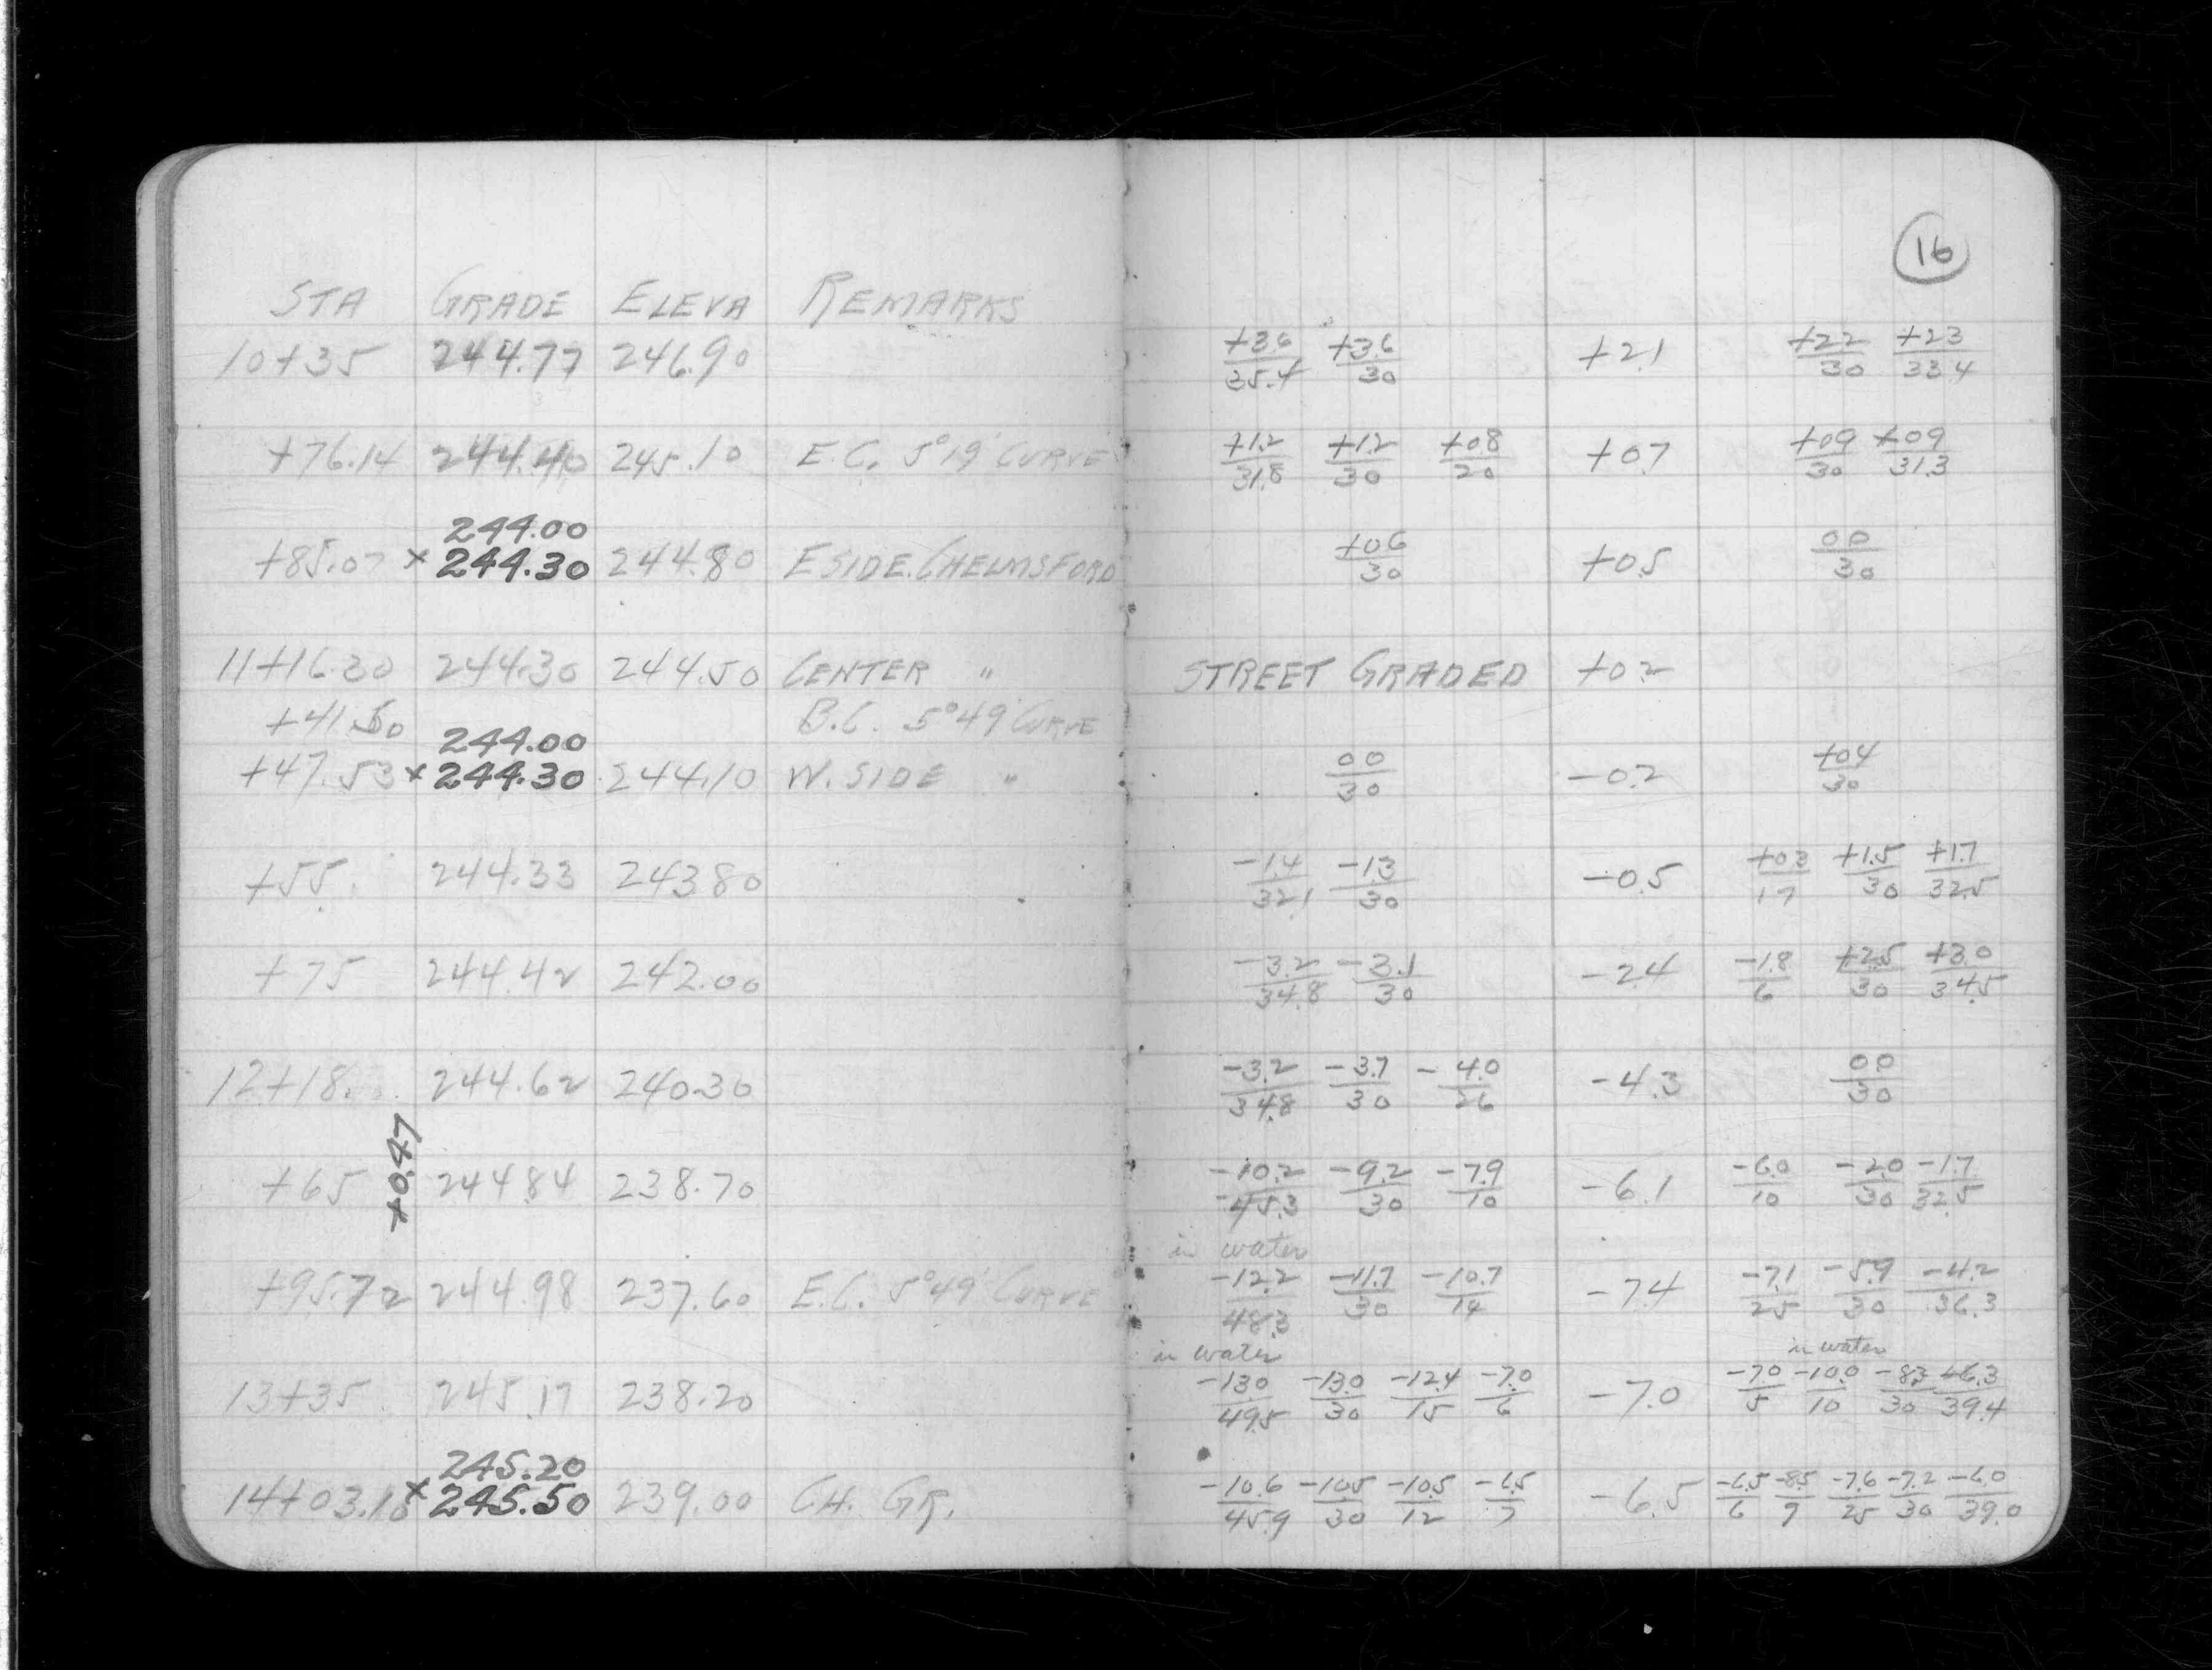 16
STA GRADE ELEVA REMARKS
10+35 244.77 246.90 +3.6/35.4 +3.6/30 +2.1 +2.2/30 +2.3/33.4
+76.14 244.40 245.10 E.C. 5°19' CURVE +1.2/31.8 +1.2/30 +0.8/20 +0.7 +0.9/30 +0.9/31.3
244.00
+85.07 x 244.30 244.80 E SIDE. CHELMSFORD +0.6/30 +0.5 0.0/30
11+16.30 244.30 244.50 CENTER " STREET GRADED +0.2
+41.50 B.C. 5°49' CURVE
244.00
+47.53 x 244.30 244.10 W. SIDE " 0.0/30 -0.2 +0.4/30
+55. 244.33 243.80 -1.4/32.1 -1.3/30 -0.5 +0.3/17 +1.5/30 +1.7/32.5
+75 244.42 242.00 -3.2/34.8 -3.1/30 -2.4 -1.8/6 +2.5/30 +3.0/34.5
12+18. 244.62 240.30 -3.2/34.8 -3.7/30 -4.0/26 -4.3 0.0/30
+0.47
+65 244.84 238.70 -10.2/45.3 -9.2/30 -7.9/10 -6.1 -6.0/10 -2.0/30 -1.7/32.5
in water
+95.72 244.98 237.60 E.C. 5°49' CURVE -12.2/48.3 -11.7/30 -10.7/14 -7.4 -7.1/25 -5.9/30 -4.2/36.3
in water in water
13+35 245.17 238.20 -13.0/49.5 -13.0/30 -12.4/15 -7.0/6 -7.0 -7.0/5 -10.0/10 -8.3/30 -6.3/39.4
245.20
14+03.18 x 245.50 239.00 CH. GR. -10.6/45.9 -10.5/30 -10.5/12 -6.5/7 -6.5 -6.5/6 -8.5/9 -7.6/25 -7.2/30 -6.0/39.0